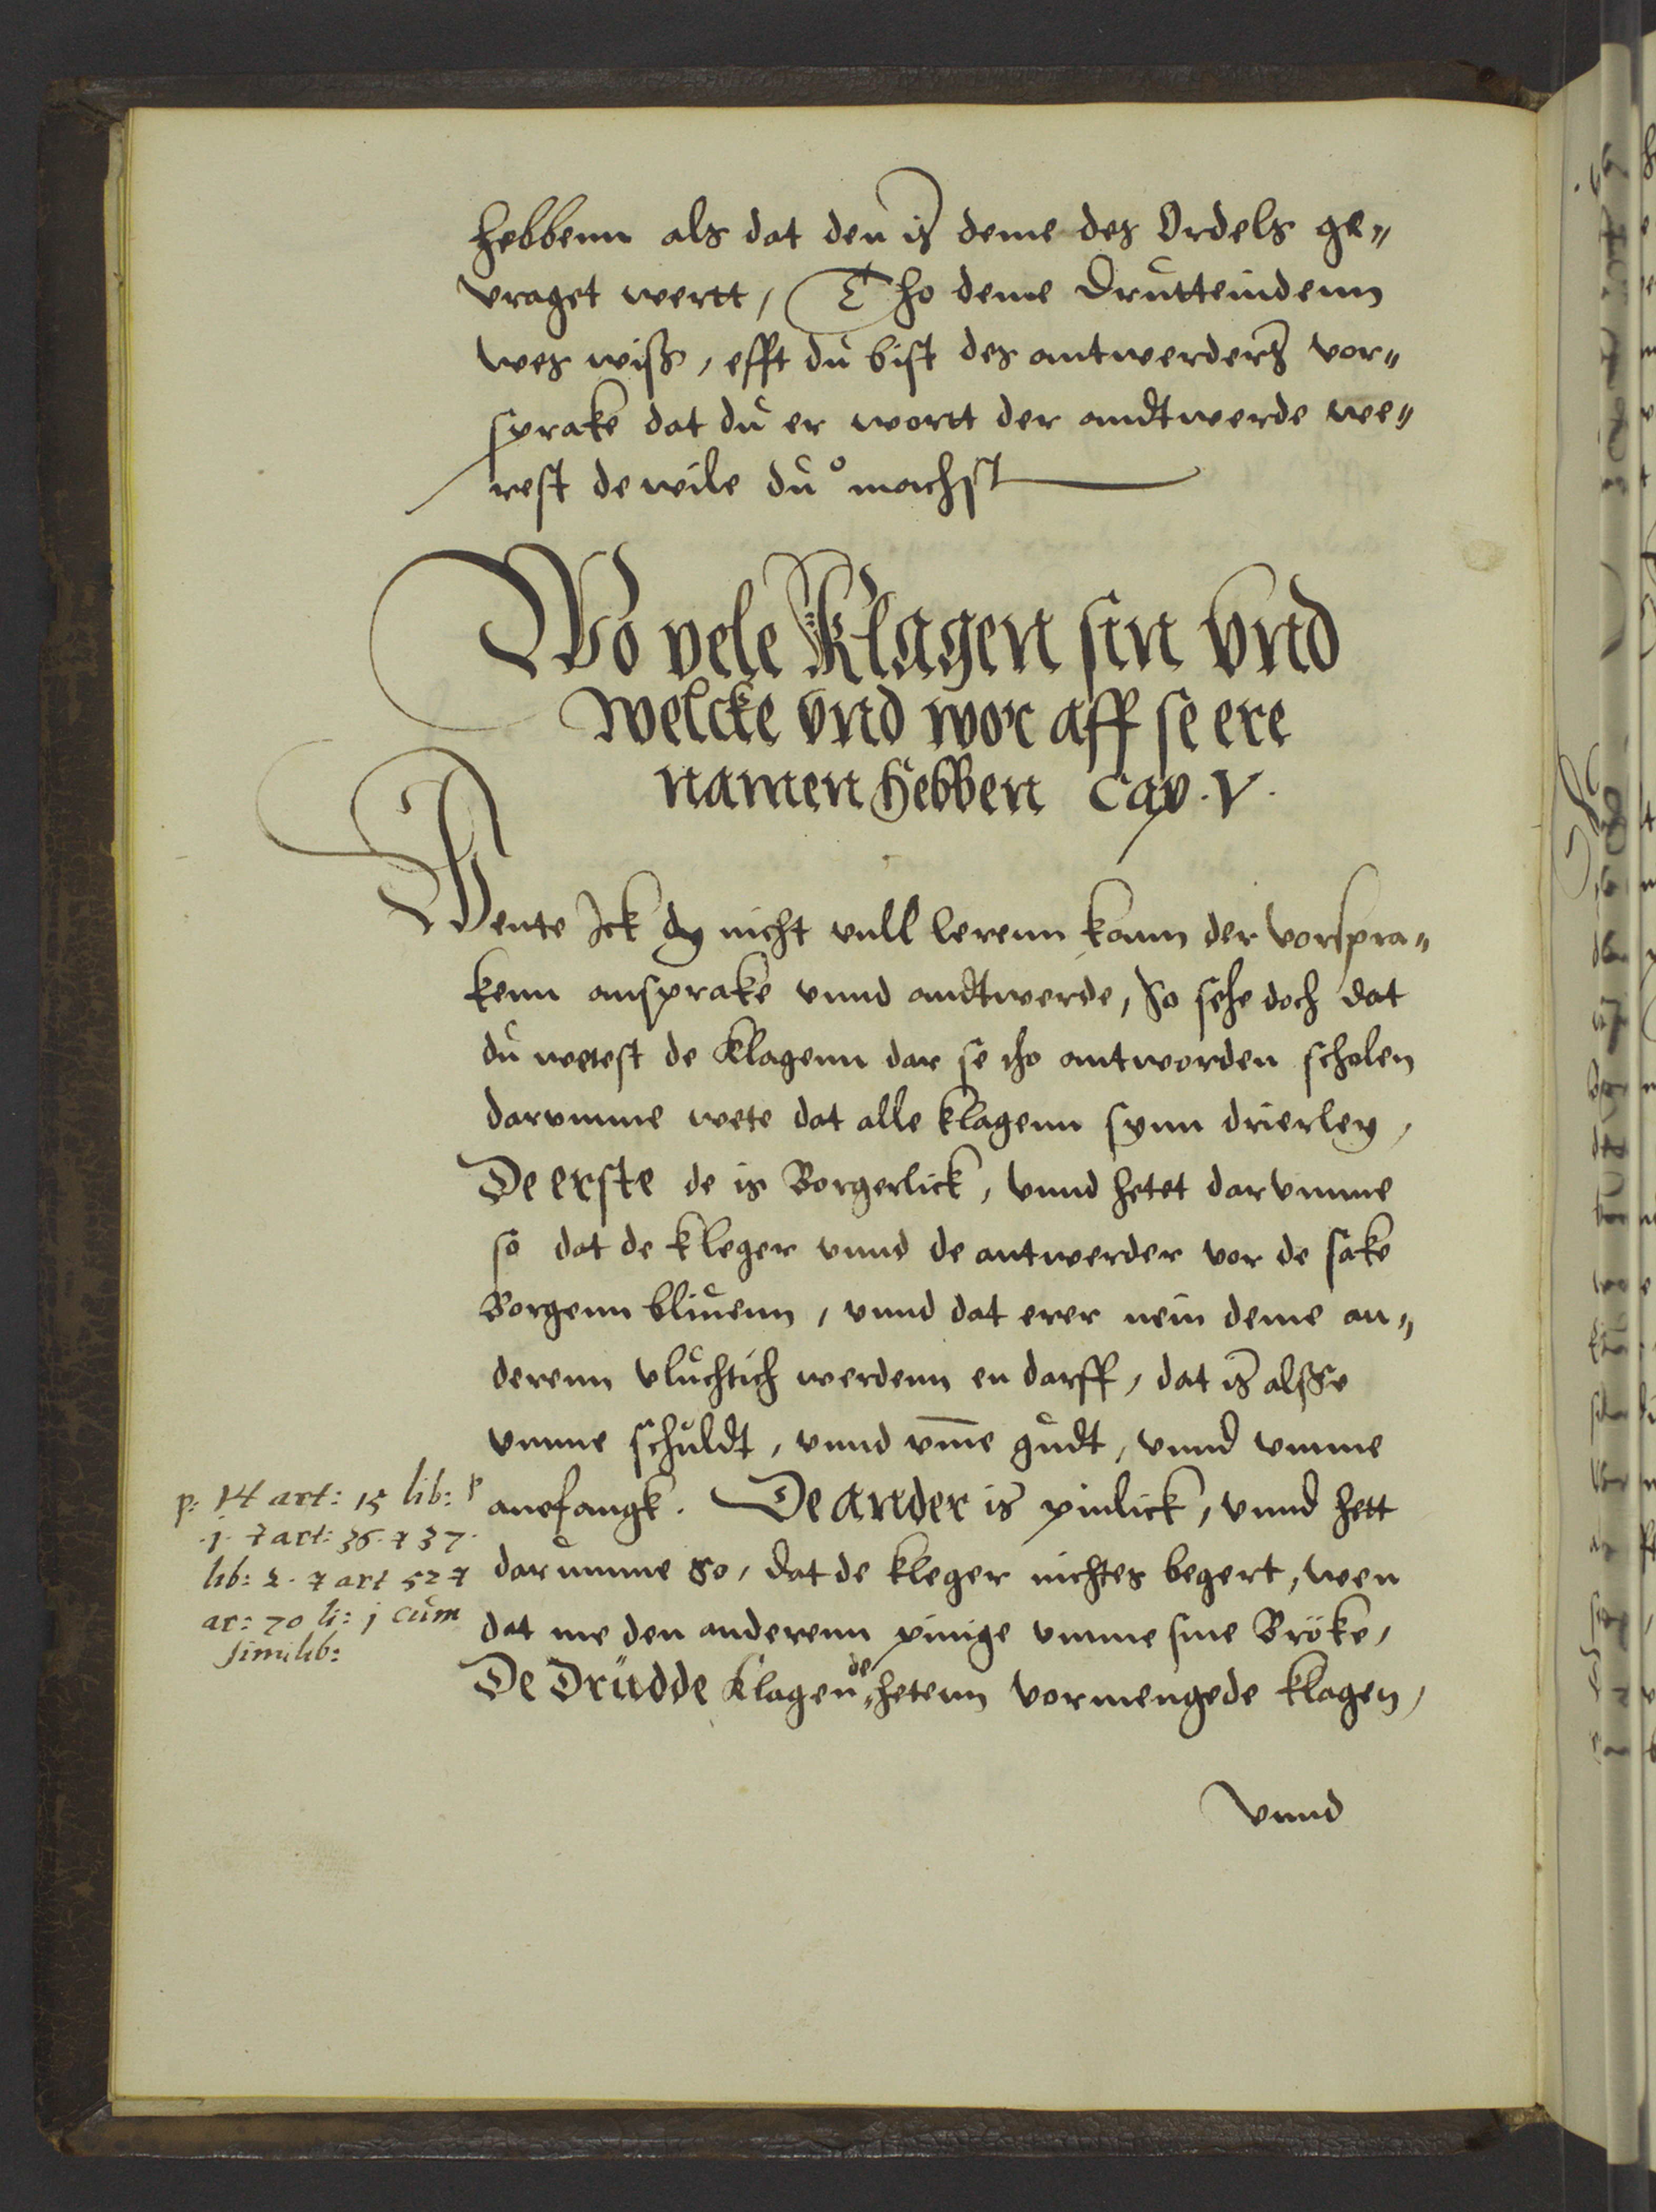 hebbenn als dat den is deme des Ordels ge„
vraget wertt, Tho deme Drutteindenn
wes wiss, efft du bist des antwerders vor„
sprake dat du er wortt der andtwerde we„
rest de wile du machst
Wo vele Klagen sin vnd
welcke vnd wor aff se ere
namen hebben Cap. V.
Wente Ick dy nicht vull lerenn kann der vorspra„
kenn ansprake vnnd andtwerde, So sehe doch dat
du wetest de Klagenn dar se tho antworden scholen
darumme wete dat alle klagenn synn drierley,
De erste de is Borgerlick, vnnd hetet darvmme
so dat de kleger vnnd de antwerder vor de sake
Borgenn bliuenn, vnnd dat erer nein deme an„
derenn vluchtich werdenn en darff, dat is alsse
vmme schuldt, vnnd vm̅e gudt, vnnd vmme
anefangk. De ander is pinlick, vnnd hett
darumme so, dat de kleger nichtes begert, wen
dat me den anderenn pinige vmme sine Bröke,
De Drüdde Klagen de hetenn vormengede klagen,
vnnd
p: 14 art: 15 lib: p
.j. 7 art: 36. 7 37.
lib: 2. 7 art 52 7
ar: 70 li: j cum
similib: